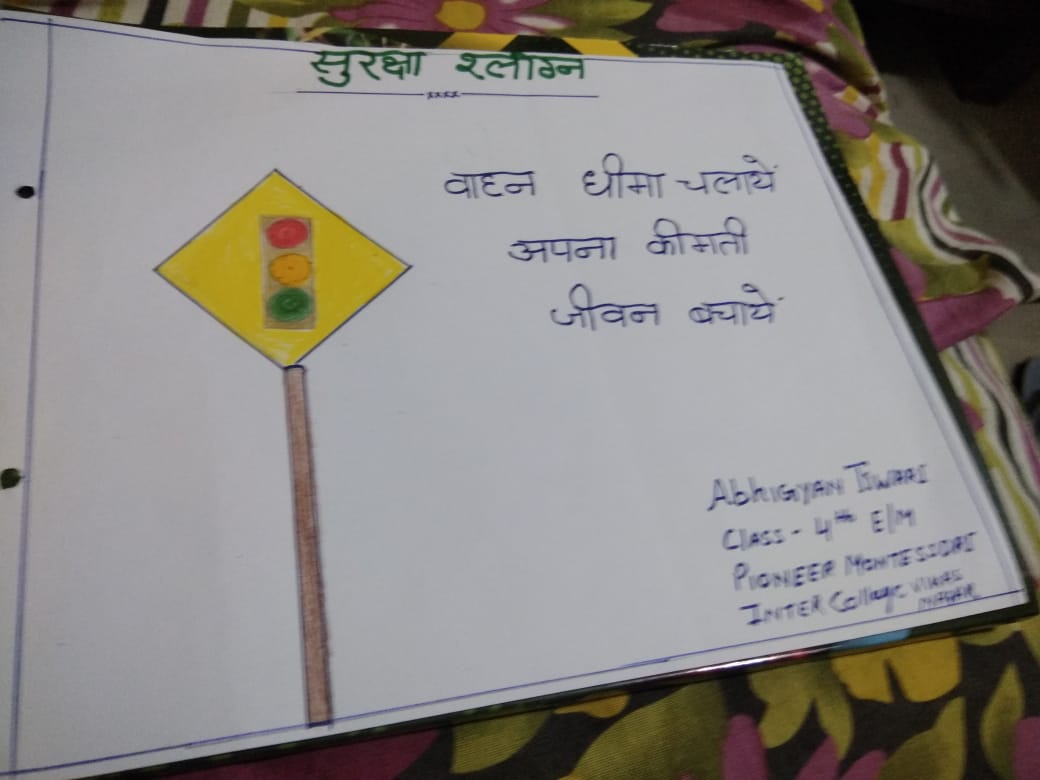 सुरक्षा श्लोगन
xxxx
वाहन धीमा चलायें
अपना कीमती
जीवन बचायें
AbhIGYAN TIWARI
CLASS - 4th E/M
PIONEER MONTESSORI
INTER College VIKAS
NAGAR